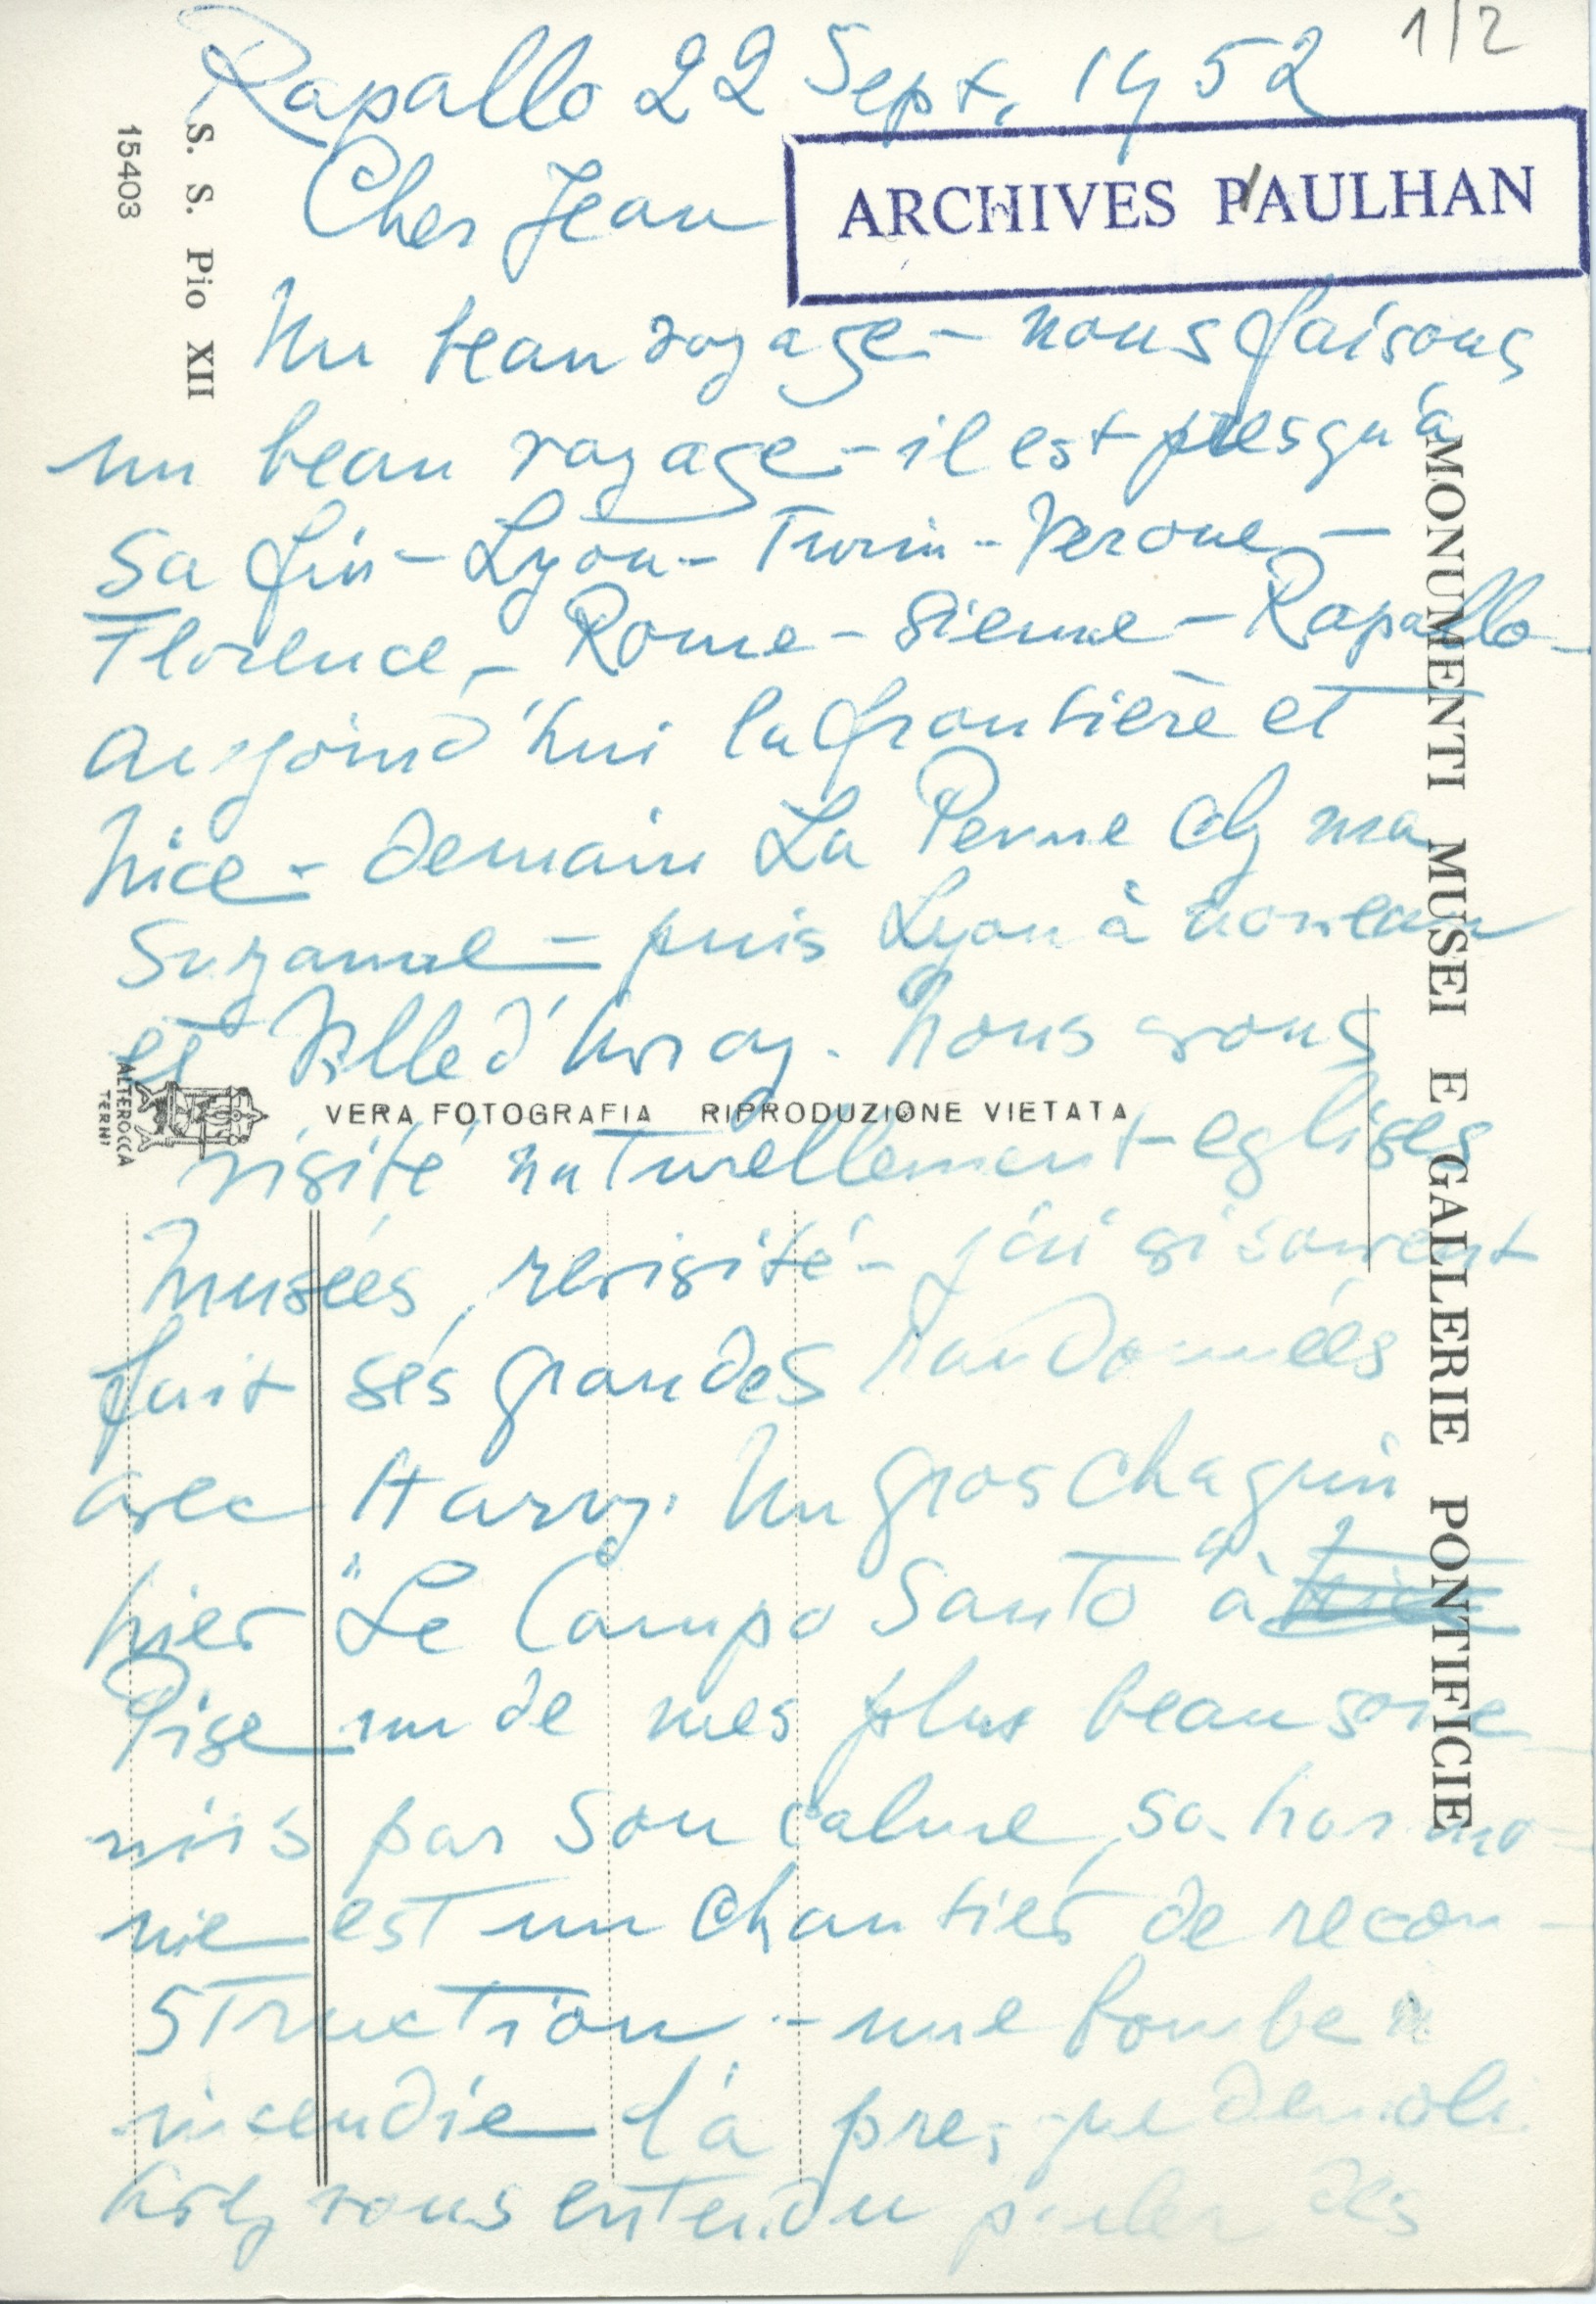 1/2
Rapallo 22 Sept. 1952
Cher Jean
ARCHIVES PAULHAN
Un beau voyage - nous faisons
un beau voyage - il est presqu'à
sa fin - Lyon - Turin - Verone -
Florence - Rome - Sienne - Rapallo -
aujourd'hui la frontière et
Nice - demain La Penne chz ma
Suzanne - puis Lyon à nouveau
et Ville d'Avray. Nous avons
visité naturellement eglises
Musées, revisité - j'ai si souvent
fait ses grandes randonnées
avec Harry. Un gros chagrin
hier "Le Campo Santo" à
Pise un de mes plus beau souve-
nirs par son calme, sa harmo-
nie est un chantier de recon-
struction - une bombe
incendie l'a presque demoli
Avez vous entendu parler des
S. S. Pio XII
15403
MONUMENTI MUSEI E GALLERIE PONTIFICIE
ALTEROCCA
TERNI
VERA FOTOGRAFIA RIPRODUZIONE VIETATA